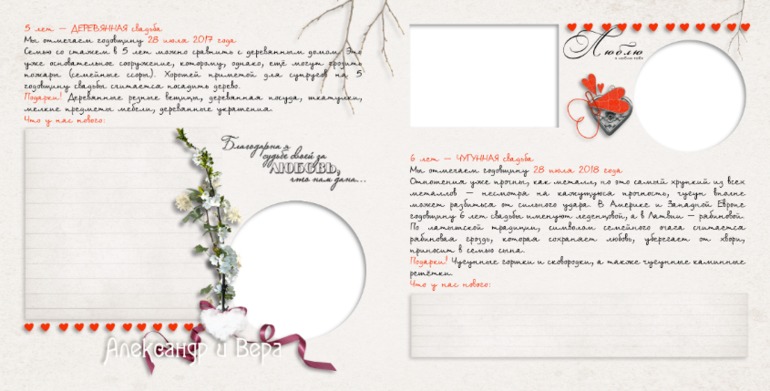 5 лет — ДЕРЕВЯННАЯ свадьба
Мы отмечаем годовщину 28 июля 2017 года
Семью со стажем в 5 лет можно сравнить с деревянным домом. Это
уже основательное сооружение, которому, однако, ещё могут грозить
пожары (семейные ссоры). Хорошей приметой для супругов на 5
годовщину свадьбы считается посадить дерево.
Подарки! Деревянные резные вещицы, деревянная посуда, шкатулки,
мелкие предметы мебели, деревянные украшения.
Что у нас нового:
Благодарна я
судьбе своей за
ЛЮБОВЬ,
что нам дана...
Александр и Вера
Люблю
6 лет — ЧУГУННАЯ свадьба
Мы отмечаем годовщину 28 июля 2018 года
Отношения уже прочны, как металл, но это самый хрупкий из всех
металлов — несмотря на кажущуюся прочность, чугун вполне
может разбиться от сильного удара. В Америке и Западной Европе
годовщину 6 лет свадьбы именуют леденцовой, а в Латвии — рябиновой.
По латышской традиции, символом семейного очага считается
рябиновая гроздь, которая сохраняет любовь, уберегает от хвори,
приносит в семью сына.
Подарки! Чугунные горшки и сковородки, а также чугунные каминные
решётки.
Что у нас нового: